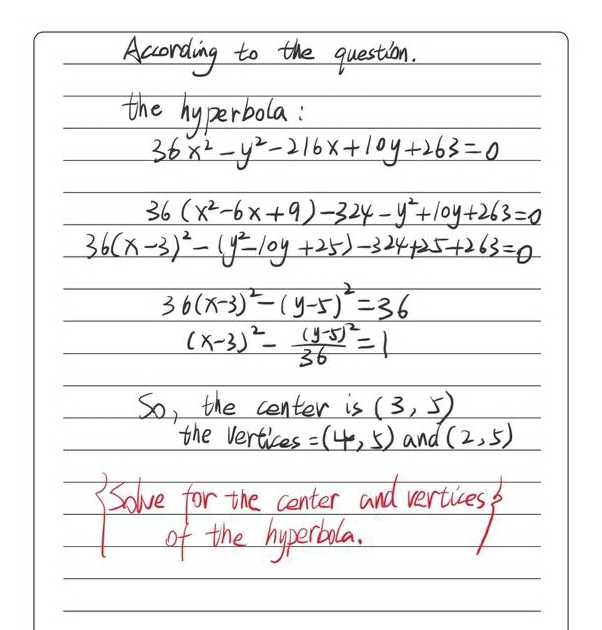 According to the question.
the hyperbola:
36x² - y² - 216x + 10y + 263 = 0
36(x² - 6x + 9) - 324 - y² + 10y + 263 = 0
36(x - 3)² - (y² - 10y + 25) - 324 + 25 + 263 = 0
36(x - 3)² - (y - 5)² = 36
(x - 3)² - (y - 5)²/36 = 1
So, the center is (3, 5)
the vertices = (4, 5) and (2, 5)
{Solve for the center and vertices}
of the hyperbola.